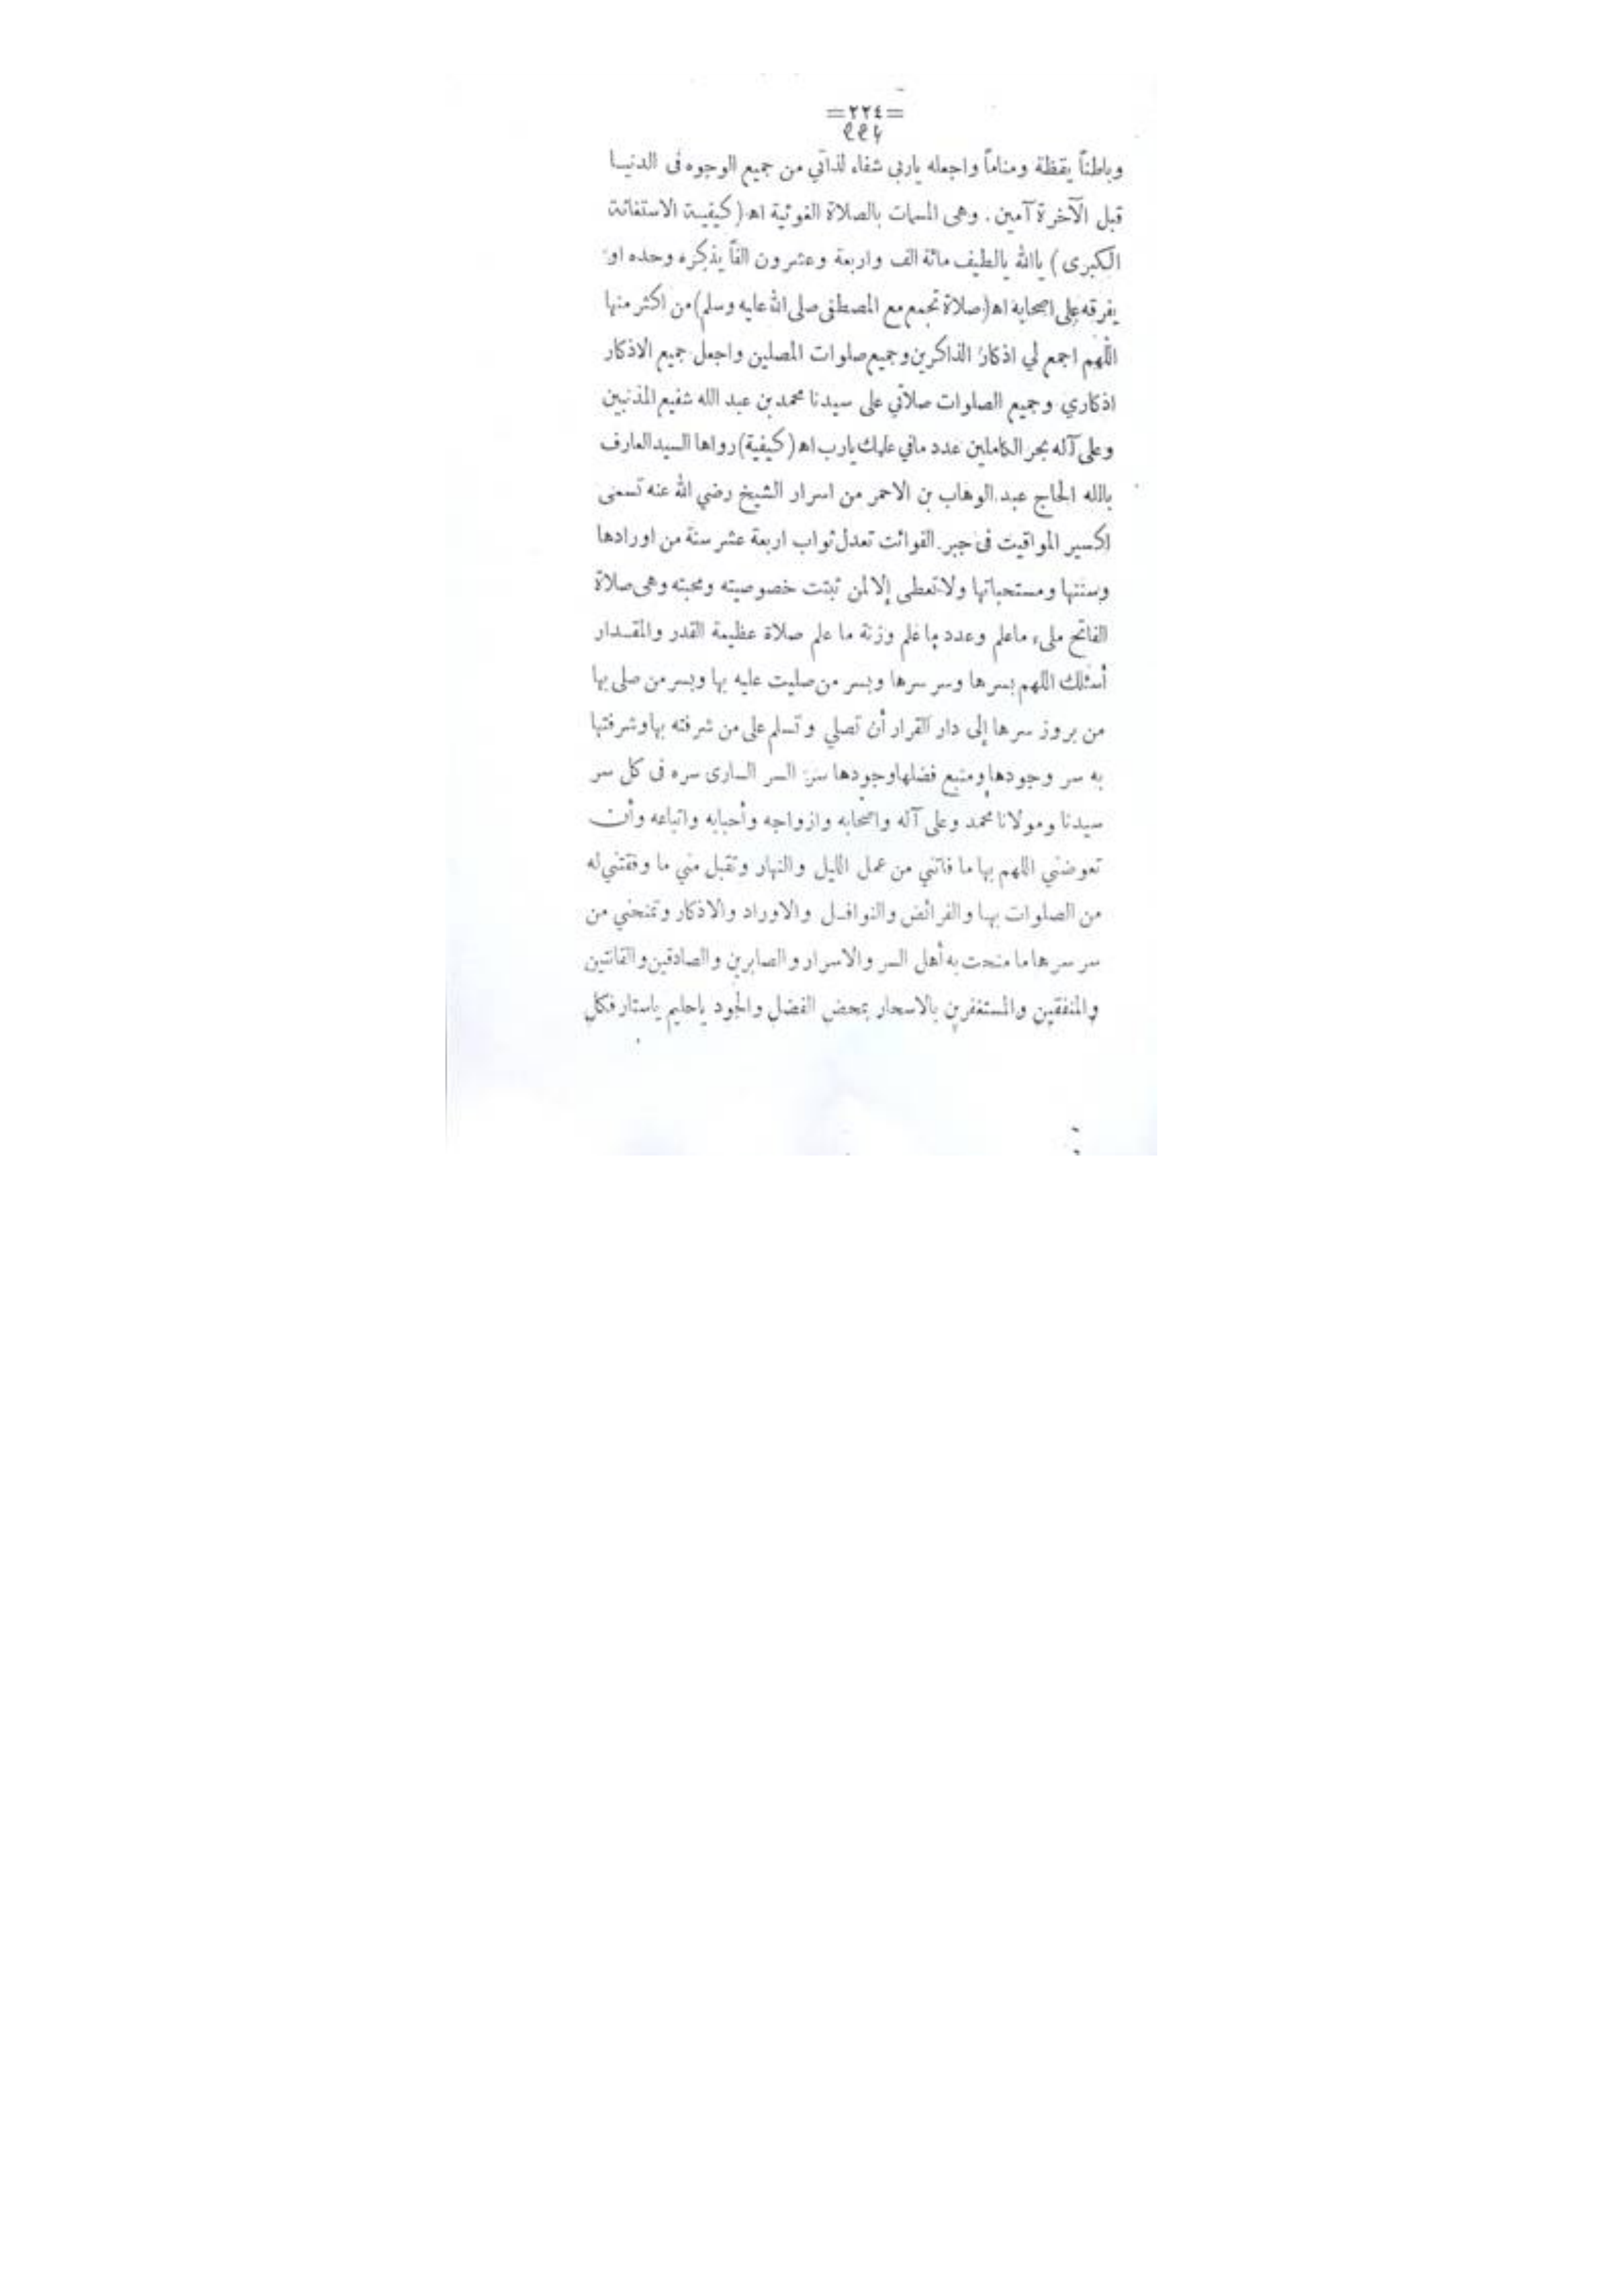 =٢٢٤=
وباطناً يقظة ومناماً واجعله ياربى شفاء لذاتي من جميع الوجوه فى الدنيا
قبل الآخرة آمين . وهى المسمات بالصلاة الغوثية اه (كيفية الاستغاثة
الكبرى) ياالله يالطيف مائة الف واربعة وعشرون الفاً يذكره وحده او
يفرقه على اصحابه اه (صلاة تجمع مع المصطفى صلى الله عليه وسلم) من اكثر منها
اللهم اجمع لي اذكار الذاكرين وجميع صلوات المصلين واجعل جميع الاذكار
اذكاري وجميع الصلوات صلاتي على سيدنا محمد بن عبد الله شفيع المذنبين
وعلى آله بحر الكاملين عدد مافي علمك يارب اه (كيفية) رواها السيد العارف
بالله الحاج عبد الوهاب بن الاحمر من اسرار الشيخ رضي الله عنه تسمى
اكسير المواقيت فى جبر الفوائت تعدل ثواب اربعة عشر سنة من اورادها
وسننها ومستحباتها ولا تعطى إلا لمن ثبتت خصوصيته ومحبته وهى صلاة
الفاتح ملىء ماعلم وعدد ما علم وزنة ما علم صلاة عظيمة القدر والمقدار
أسئلك اللهم بسرها وسر سرها وبسر من صليت عليه بها وبسر من صلى بها
من بروز سرها إلى دار القرار أن تصلي وتسلم على من شرفته بها وشرفتها
به سر وجودها ومنبع فضلها وجودها سر السر السارى سره فى كل سر
سيدنا ومولانا محمد وعلى آله واصحابه وازواجه وأحبابه واتباعه وأن
تعوضني اللهم بها ما فاتني من عمل الليل والنهار وتقبل مني ما وفقتني له
من الصلوات بها والفرائض والنوافل والاوراد والاذكار وتمنحني من
سر سرها ما منحت به أهل السر والاسرار والصابرين والصادقين والقانتين
والمنفقين والمستغفرين بالاسحار بمحض الفضل والجود ياحليم ياستار فكل